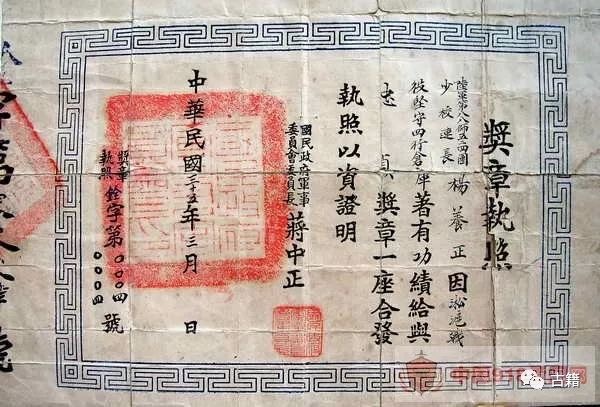 奬章執照
陸軍第八八師五二四團
少校連長 楊養正因淞滬戰
役堅守四行倉庫著有功績給與
忠貞奬章一座合發
執照以資證明
國民政府軍事
委員會委員長 蔣中正
中華民國三十五年三月 日
奬章
執照 銓字第 〇〇〇四
〇〇〇四 號
古籍